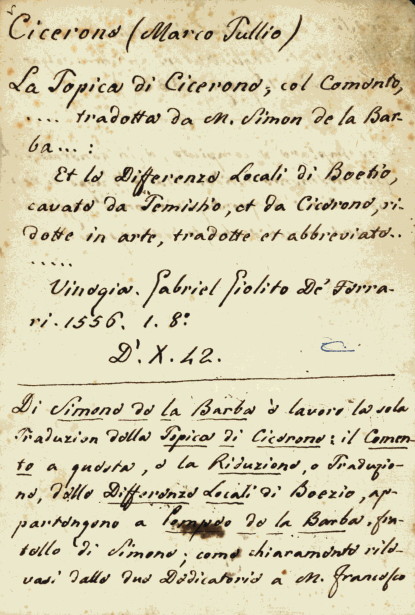 Cicerone (Marco Tullio)
La Topica di Cicerone, col Comento,
.... tradotta da M. Simon de la Bar-
ba... :
Et le Differenze Locali di Boetio,
cavate da Temistio, et da Cicerone, ri-
dotte in arte, tradotte et abbreviate..
.....
Vinegia. Gabriel Giolito De' Ferra-
ri. 1556. 1. 8.º
D'. X. 42.
Di Simone de la Barba è lavoro la sola
Traduzion della Topica di Cicerone: il Comen-
to a questa, e la Riduzione, o Traduzio-
ne, delle Differenze Locali di Boezio, ap-
partengono a Pompeo de la Barba, fra-
tello di Simone; come chiaramente rile-
vasi dalle due Dedicatorie a M. Francesco